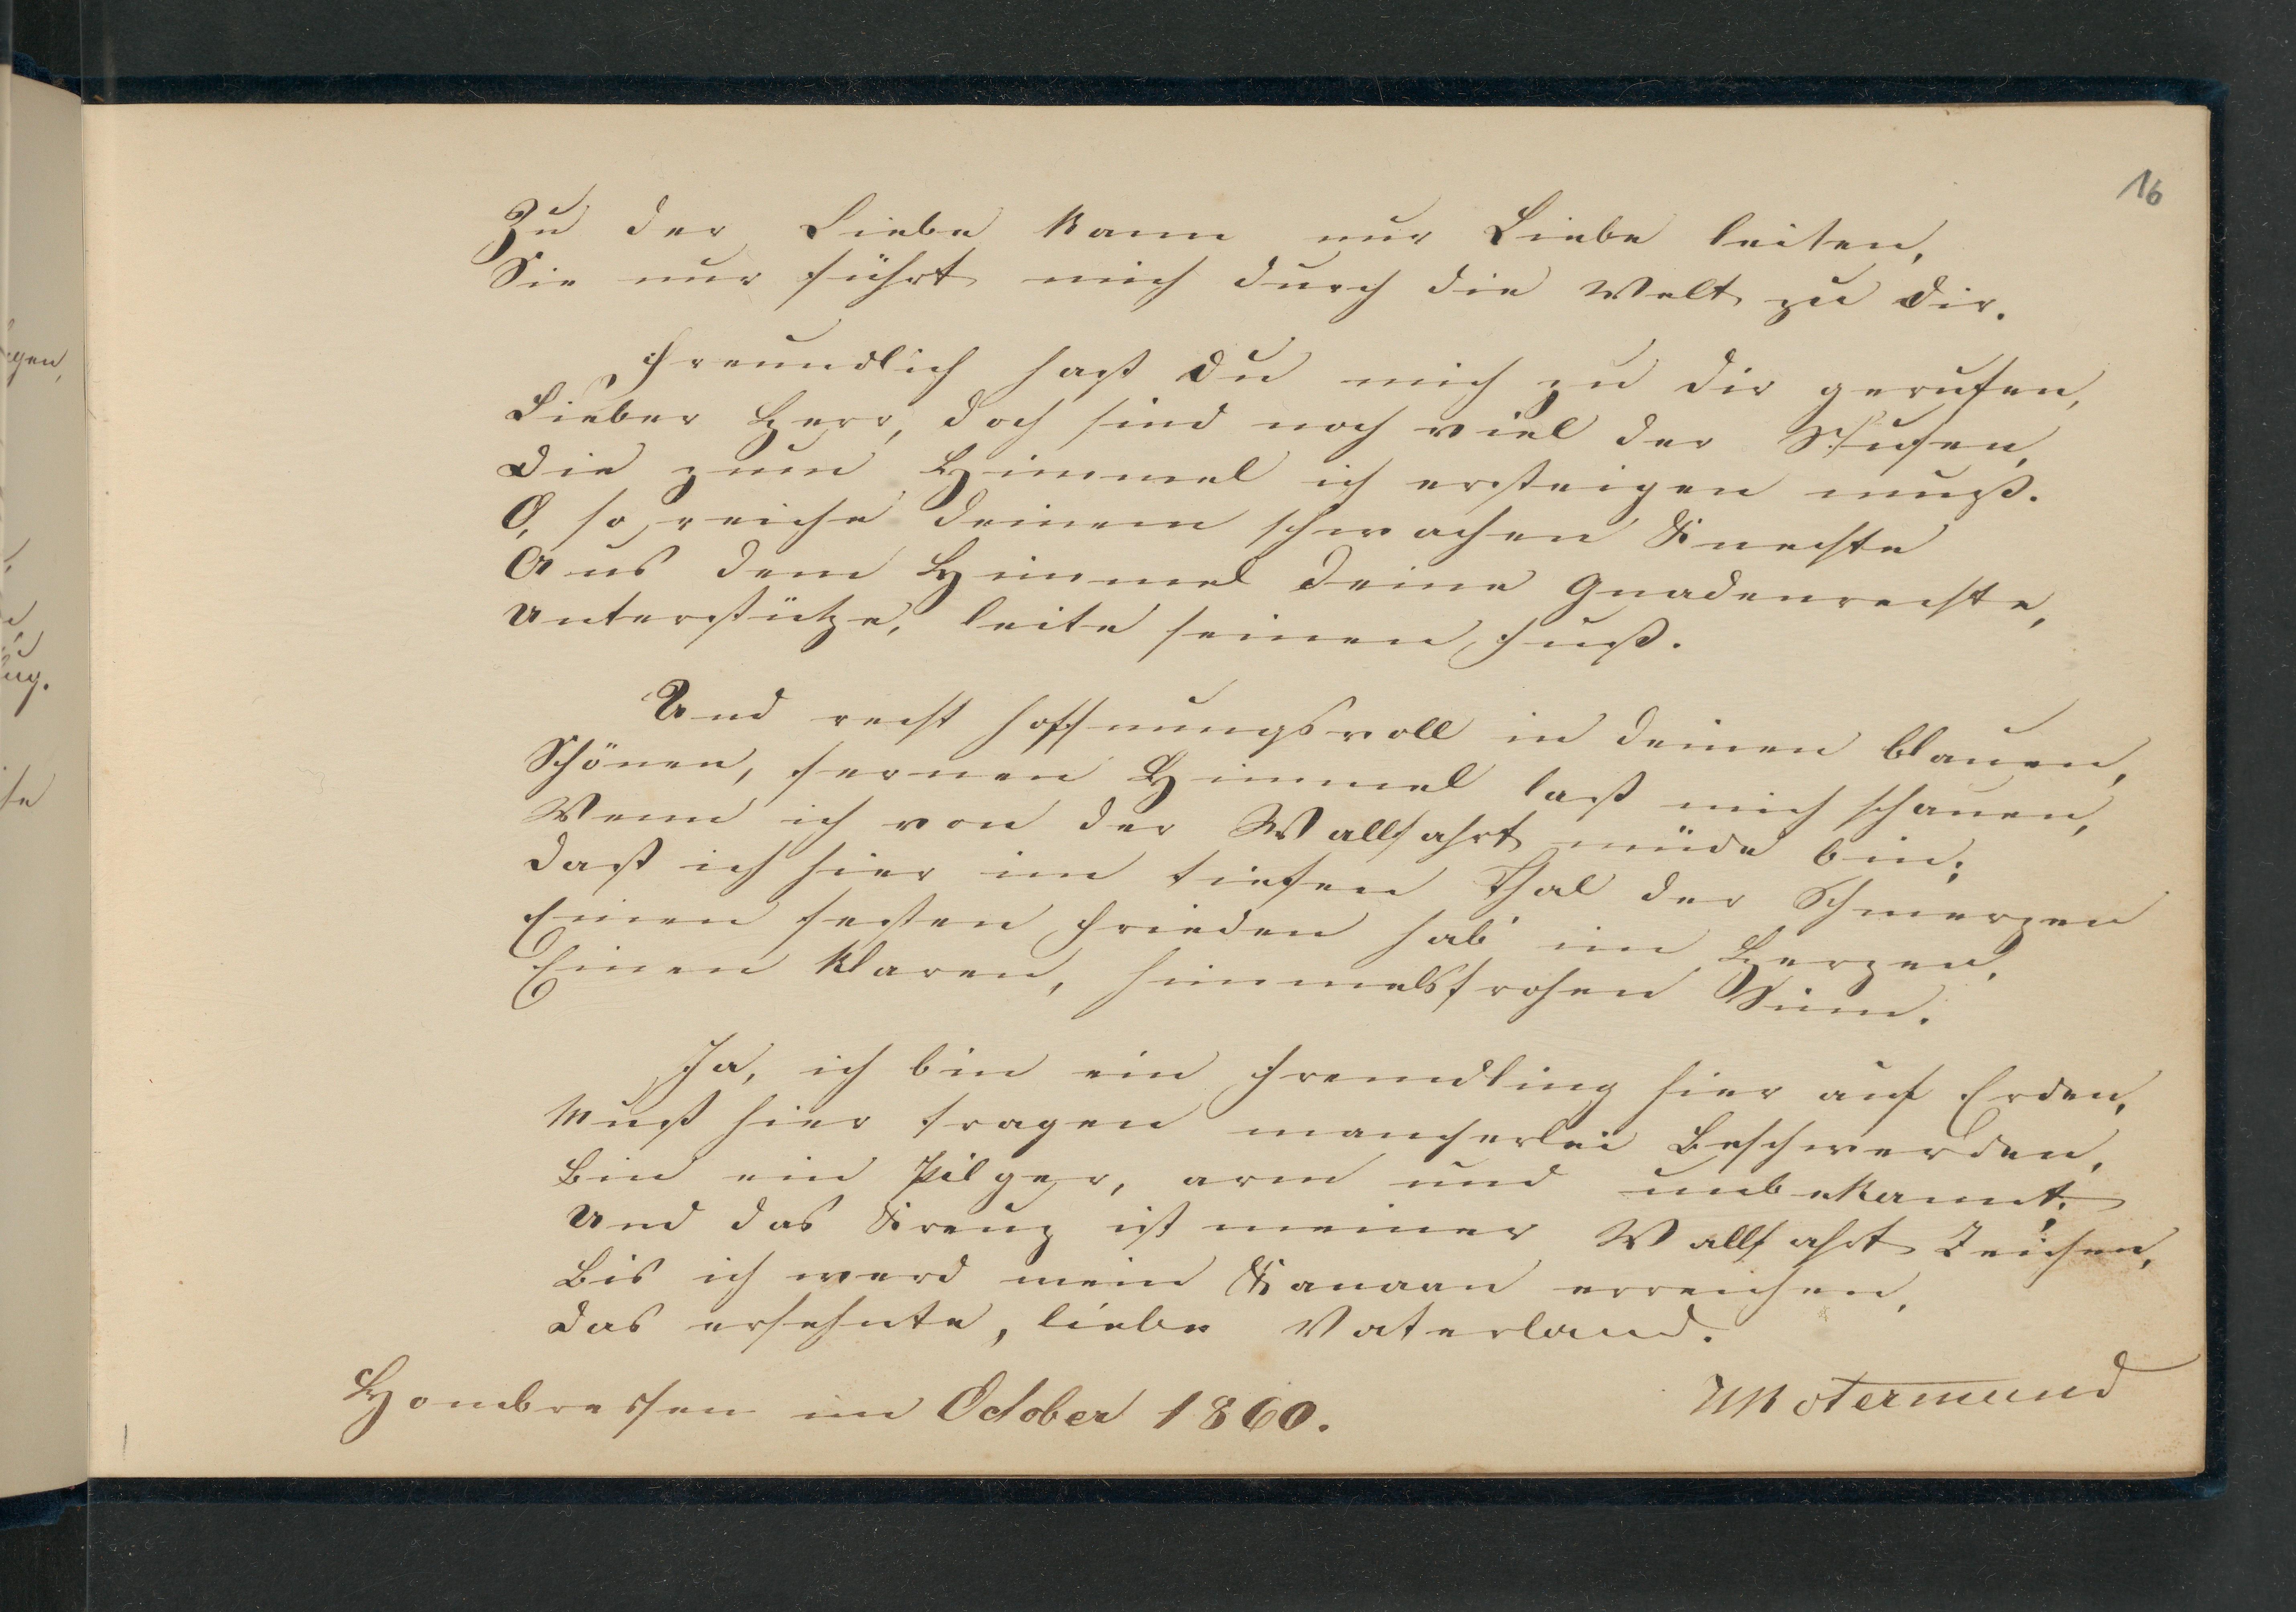 16
Zu der Liebe kann nur Liebe leiten,
Sie nur führt mich durch die Welt zu dir.
Freundlich hast Du mich zu dir gerufen,
Lieber Herr, doch sind noch viel der Stufen,
Die zum Himmel ich ersteigen muß.
O, so reiche deinem schwachen Knechte
Aus dem Himmel deine Gnadenrechte,
Unterstütze, leite seinen Fuß.
Und recht hoffnungsvoll in deinen blauen,
Schönen, fernen Himmel laß mich schauen,
Wenn ich von der Wallfahrt müde bin;
Daß ich hier im tiefen Thal der Schmerzen
Einen festen Frieden hab' im Herzen,
Einen klaren, himmelsfrohen Sinn.
Ja, ich bin ein Fremdling hier auf Erden,
Muß hier tragen mancherlei Beschwerden,
Bin ein Pilger, arm und unbekannt;
Und das Kreuz ist meiner Wallfahrt Zeichen,
Bis ich werd mein Kanaan erreichen,
Das ersehnte, liebe Vaterland.
Hombressen im October 1860.
gen,
ug.